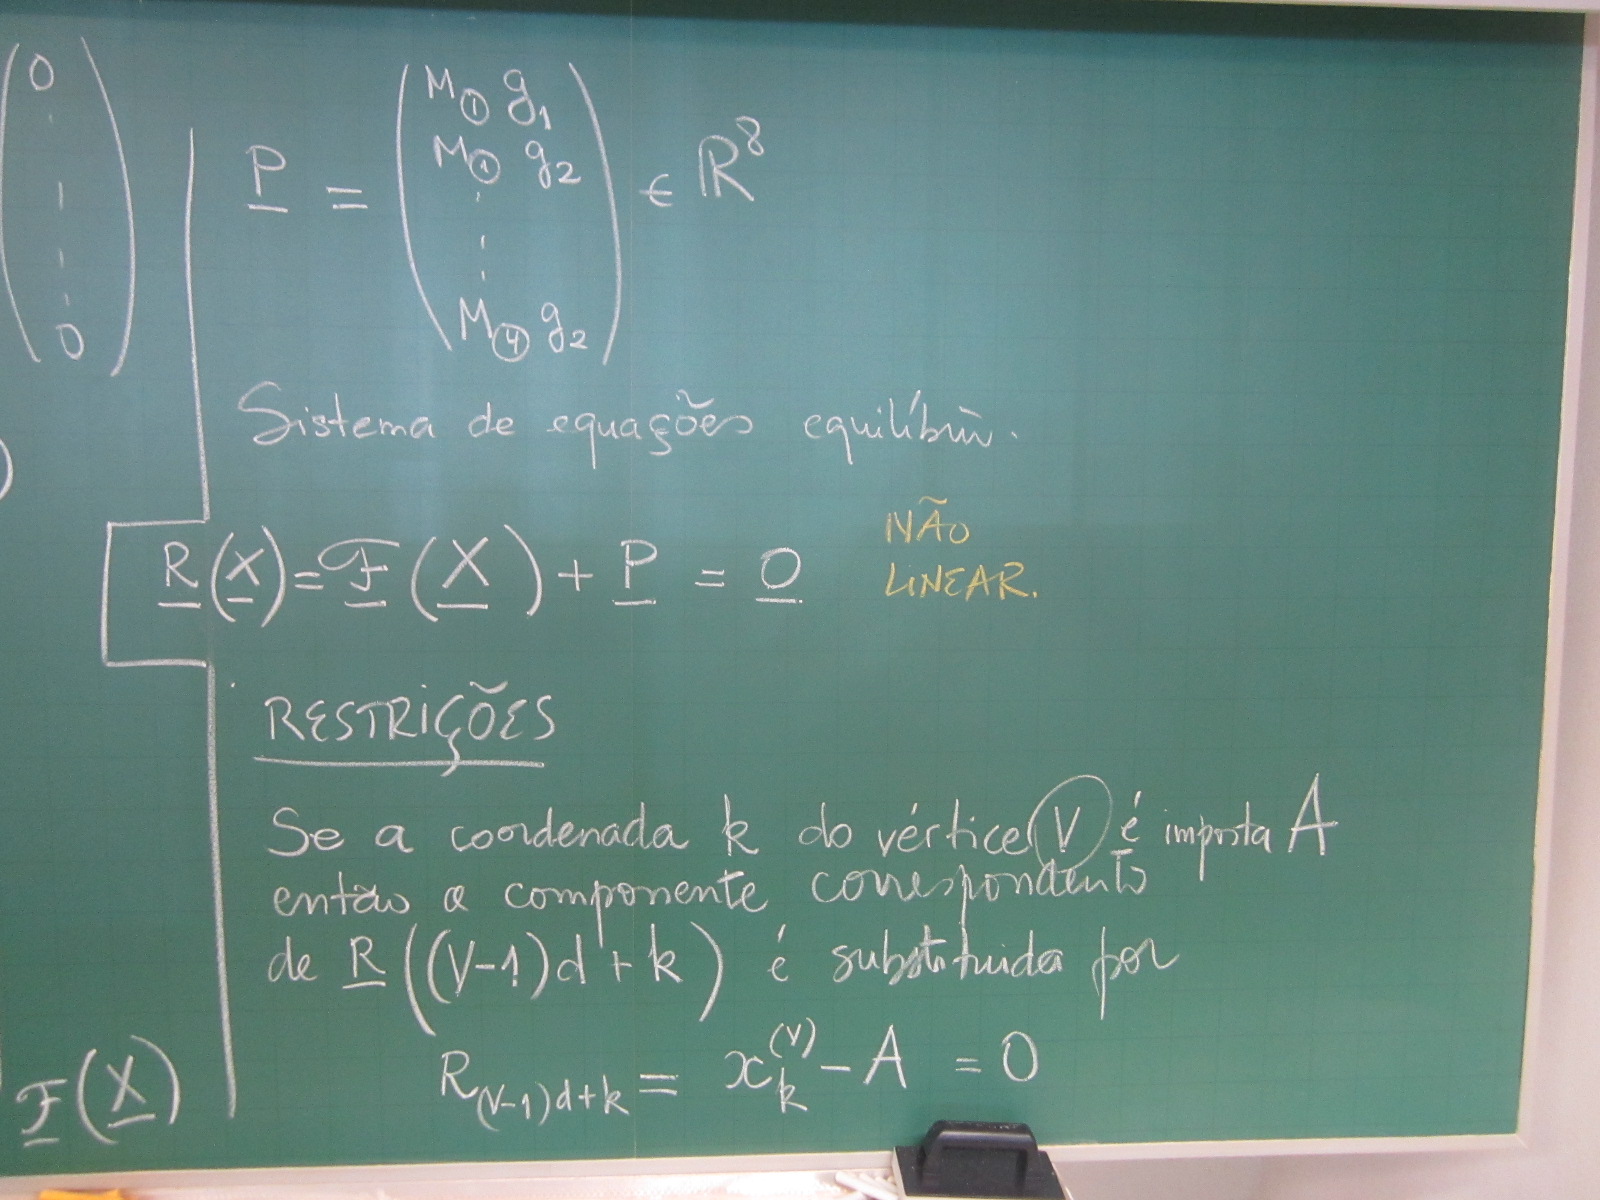 0
0
P = ( M① g₁
M① g₂
M④ g₂ ) ∈ ℝ⁸
Sistema de equações equilíbrio.
R(X) = F(X) + P = 0
NÃO
LINEAR.
RESTRIÇÕES
Se a coordenada k do vértice V é imposta A
então a componente correspondente
de R((V-1)d+k) é substituida por
R_(V-1)d+k = x_k^(V) - A = 0
F(X)